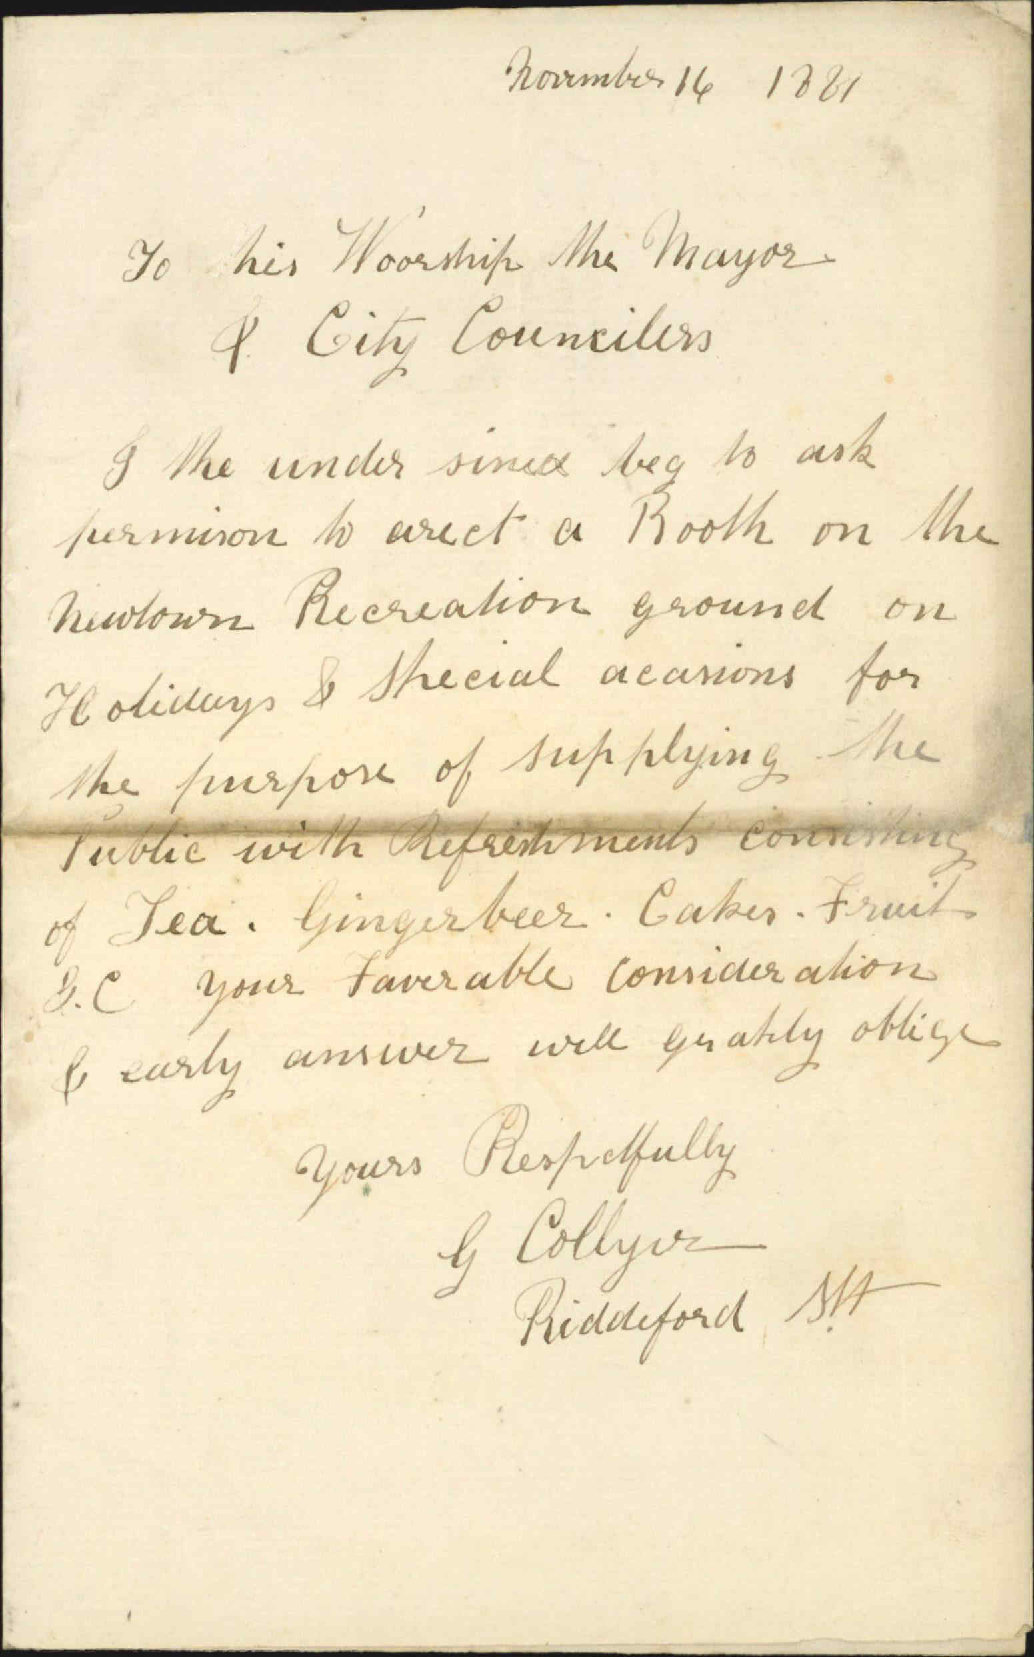 November 16 1881
To his Woorship the Mayor
& City Councilers
I the under sined beg to ask
permison to erect a Booth on the
Newtown Recreation ground on
Holidays & Special acasions for
the purpose of supplying the
Public with Refreshments consisting
of Tea. Gingerbeer. Cakes. Fruit
&.C your Faverable consideration
& early answer will gratly oblige
yours Respctfully
G Collyer
Riddeford Stt